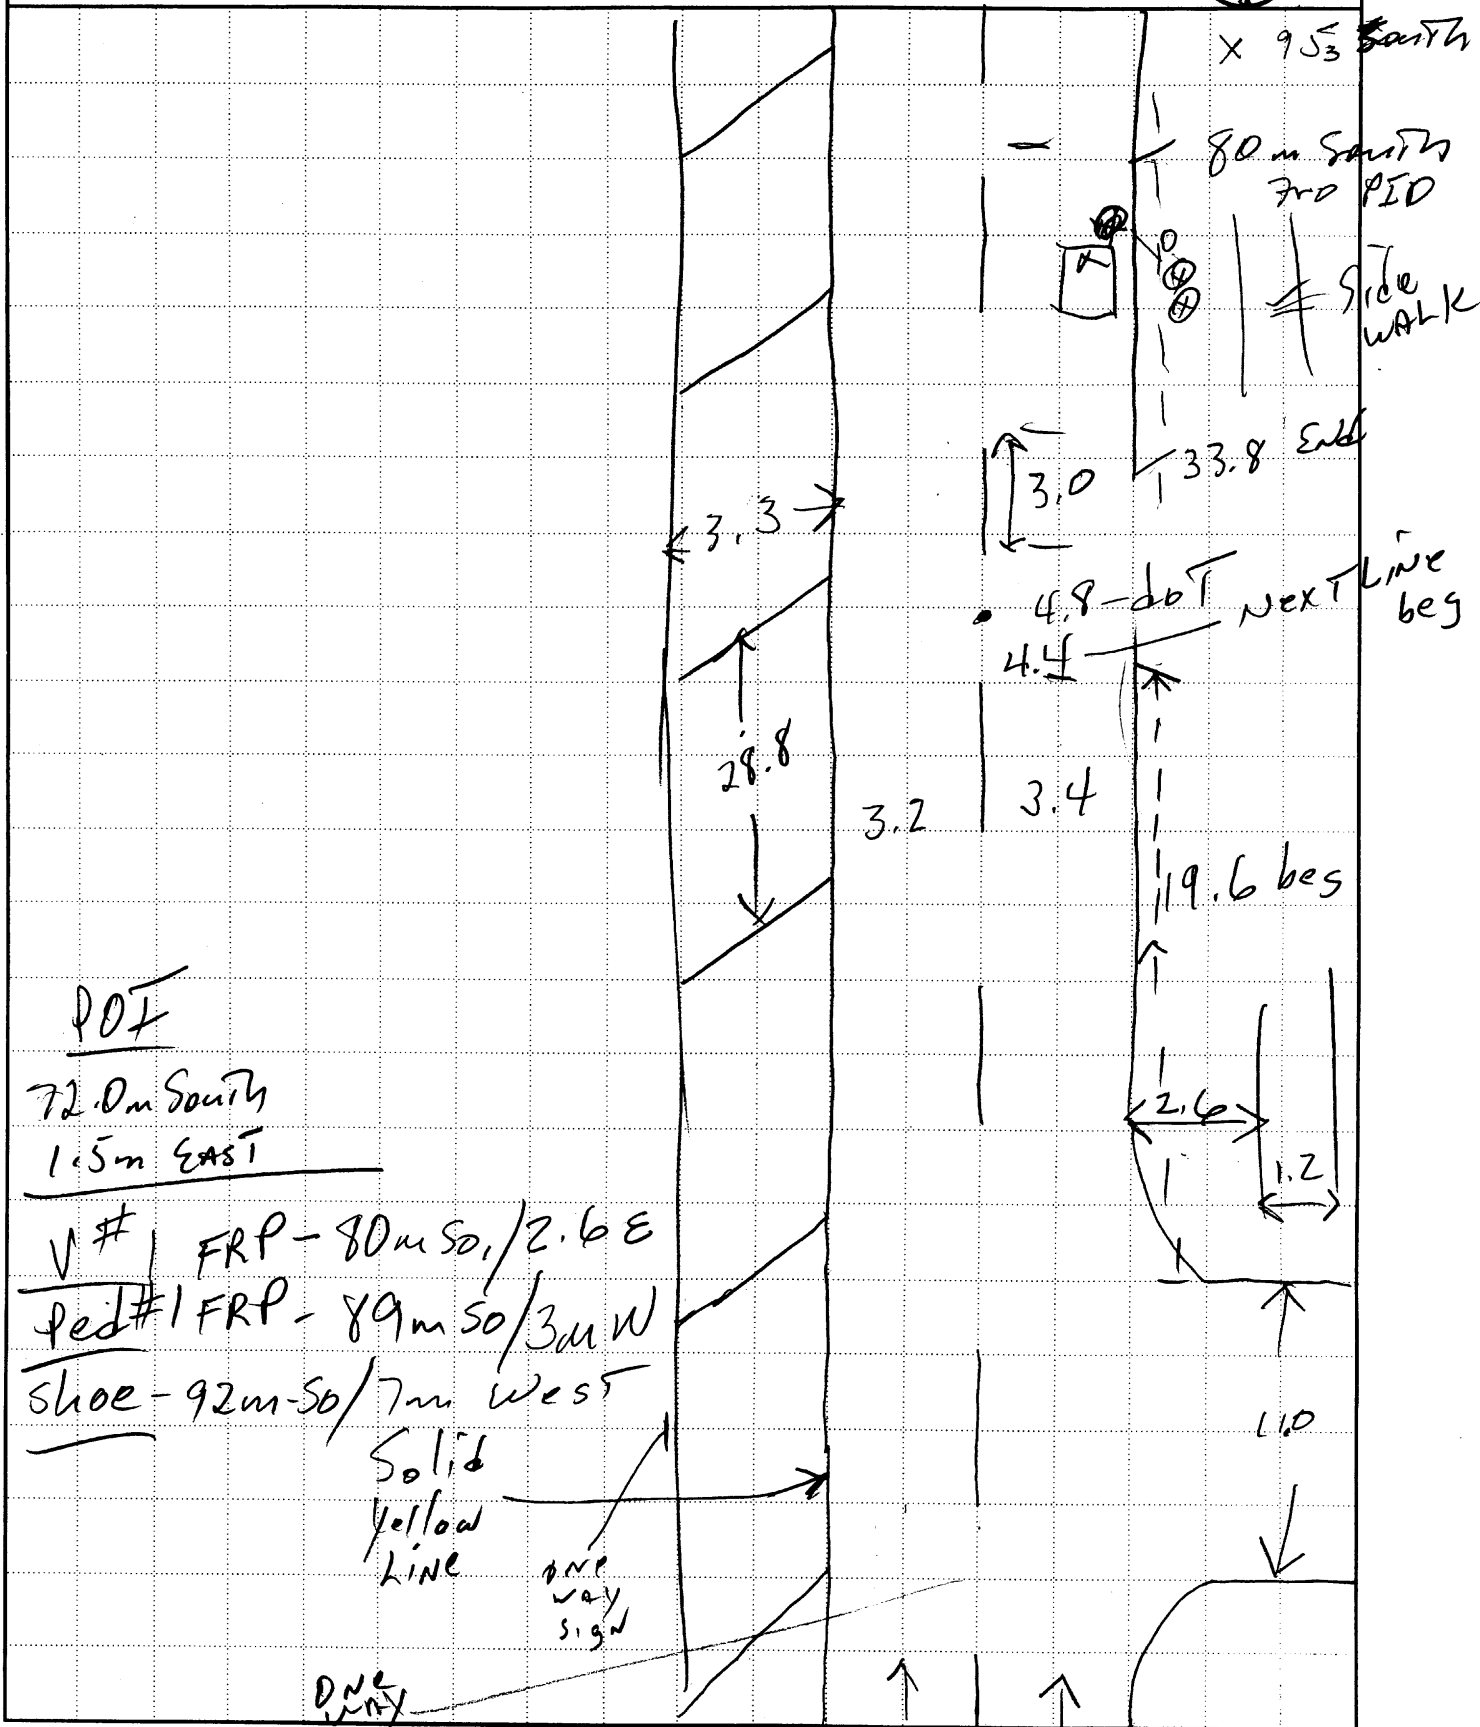 X 953 South
80 m South
PID
Side
WALK
33.8 End
3.0
3.3
4.8-doT
NexT Line
beg
4.4
28.8
3.2
3.4
19.6 beg
POI
72.0m South
1.5m EAST
2.6
1.2
V#1 FRP- 80m So./2.6 E
Ped#1 FRP- 89m So/3m W
Shoe-92m-So/7m West
11.0
Solid
yellow
Line
one
way
sign
ONE
WAY